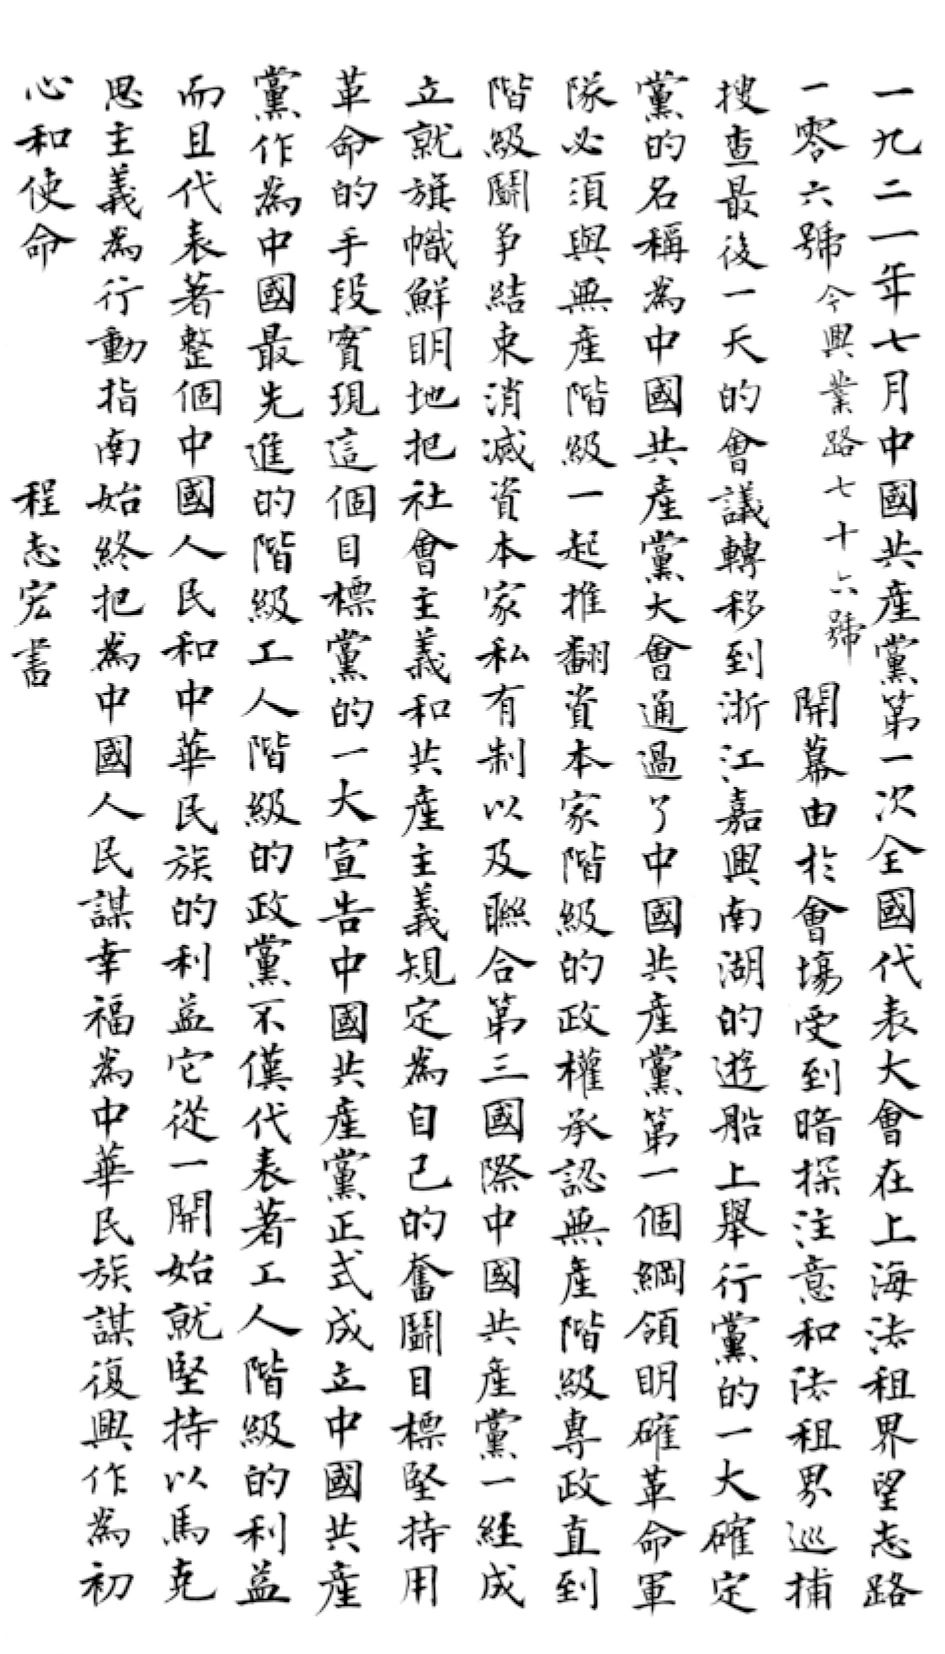 一九二一年七月中國共產黨第一次全國代表大會在上海法租界望志路
一零六號今興業路七十六號開幕由於會場受到暗探注意和法租界巡捕
搜查最後一天的會議轉移到浙江嘉興南湖的遊船上舉行黨的一大確定
黨的名稱為中國共產黨大會通過了中國共產黨第一個綱領明確革命軍
隊必須與無產階級一起推翻資本家階級的政權承認無產階級專政直到
階級鬭爭結束消滅資本家私有制以及聯合第三國際中國共產黨一經成
立就旗幟鮮明地把社會主義和共產主義規定為自己的奮鬭目標堅持用
革命的手段實現這個目標黨的一大宣告中國共產黨正式成立中國共產
黨作為中國最先進的階級工人階級的政黨不僅代表著工人階級的利益
而且代表著整個中國人民和中華民族的利益它從一開始就堅持以馬克
思主義為行動指南始終把為中國人民謀幸福為中華民族謀復興作為初
心和使命
程志宏書